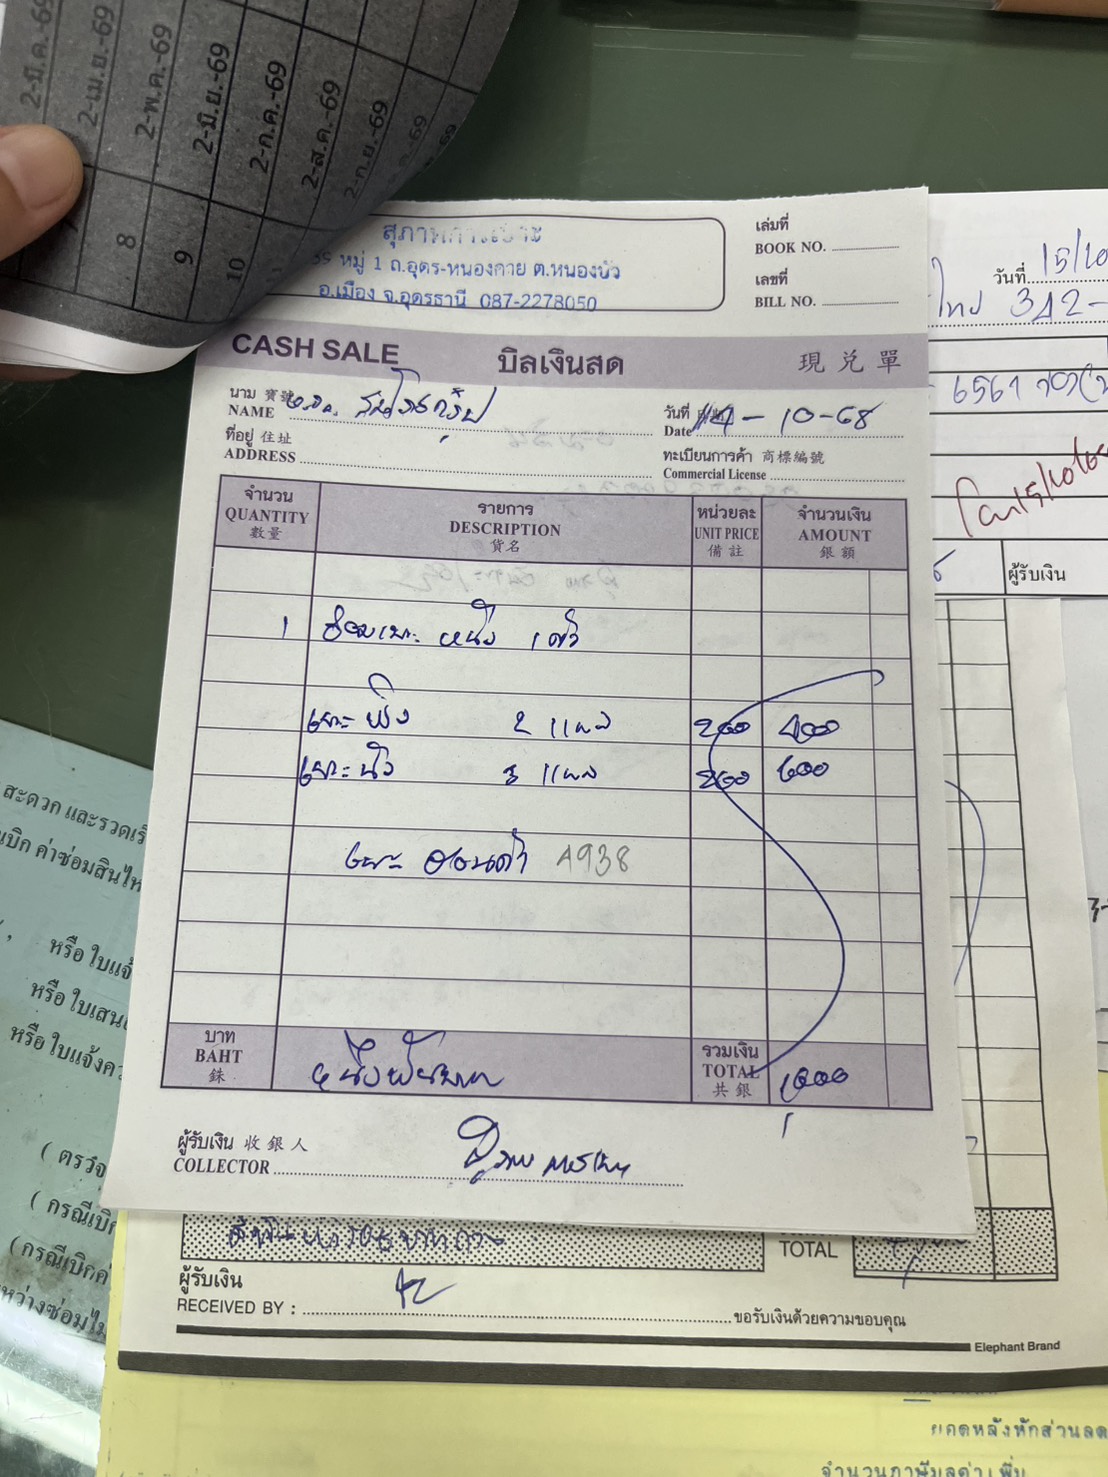 2-มี.ค.-69
2-เม.ย.-69
2-พ.ค.-69
2-มิ.ย.-69
2-ก.ค.-69
2-ส.ค.-69
2-ก.ย.-69
7
8
9
10
หมู่ 1 ถ.อุดร-หนองคาย ต.หนองบัว
อ.เมือง จ.อุดรธานี 087-2278050
เล่มที่
BOOK NO.
เลขที่
BILL NO.
CASH SALE บิลเงินสด 現兌單
นาม 寶號
NAME
วันที่
Date 14-10-68
ที่อยู่ 住址
ADDRESS
ทะเบียนการค้า 商標編號
Commercial License
จำนวน
QUANTITY
數量
รายการ
DESCRIPTION
貨名
หน่วยละ
UNIT PRICE
備註
จำนวนเงิน
AMOUNT
銀額
1 ซ่อมเบาะ หนึ่ง 1 ตัว
เบาะ พิง 2 แผล 200 400
เบาะ นั่ง 3 แผล 200 600
4938
บาท
BAHT
銖
หนึ่งพันบาท
รวมเงิน
TOTAL
共銀
1000
ผู้รับเงิน 收銀人
COLLECTOR
วันที่ 15/10
ไทย 342-
6561
ผู้รับเงิน
สะดวก และรวดเร็
เบิก ค่าซ่อมสินไห
หรือ ใบแจ้
หรือ ใบเสน
หรือ ใบแจ้งคว
( ตรวจ
( กรณีเบิก
(กรณีเบิกค่
หว่างซ่อมไม
TOTAL
ผู้รับเงิน
RECEIVED BY :
ขอรับเงินด้วยความขอบคุณ
Elephant Brand
ยอดหลังหักส่วนลด
จำนวนภาษีมูลค่าเพิ่ม